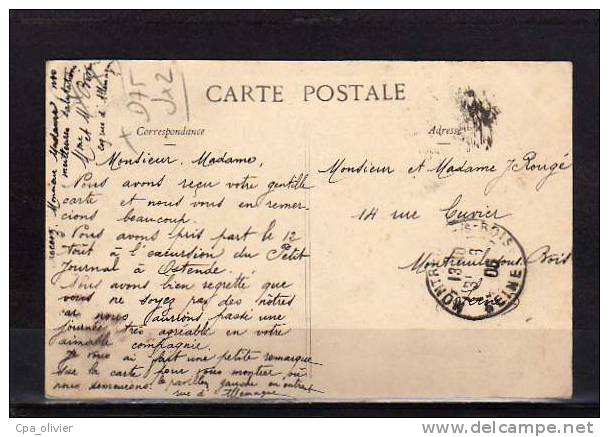 CARTE POSTALE
Correspondance
Adresse
+ D75
Jx2
Monsieur, Madame,
Nous avons reçu votre gentille
carte et nous vous en remer-
cions beaucoup.
Nous avons pris part le 12
Août à l'excursion du Petit
Journal à Ostende.
Nous avons bien regretté que
vous ne soyez pas des nôtres
car nous aurions passé une
journée très agréable en votre
aimable compagnie.
Je vous ai fait une petite remarque
sur la carte pour vous montrer où
nous demeurons: le pavillon gauche en entrant
rue d'Allemagne
recevez Monsieur Madame nos
meilleures salutations
Mme et Mr
rue d'Allemagne
Monsieur et Madame J Rougé
14 rue Cuvier
Montreuil sous Bois
Seine
MONTREUIL-S-BOIS
SEINE
Cpa_olivier
delcampe.net